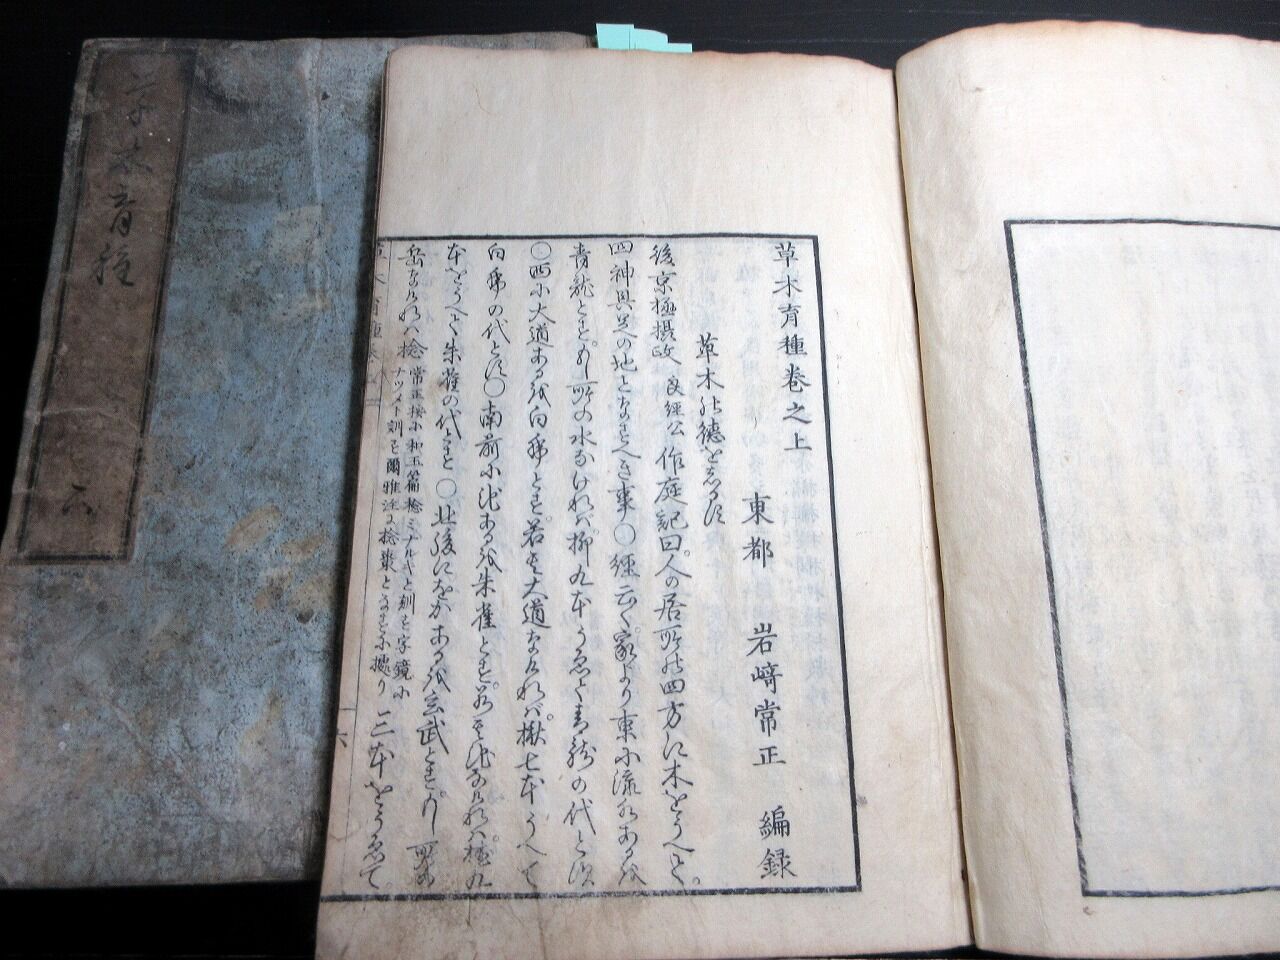 草木育種巻之上
東都 岩﨑常正 編録
草木の徳をあらはす
後京極摂政良経公作庭記曰。人の居所の四方に木をうへて。
四神具足の地となすべき事〇経云く家より東に流水あるを
青龍とす。もし所の水なければ。柳九本うゑて青龍の代とす
〇西に大道あるを白乕とす。若其大道なければ。楸七本うへて
白乕の代とす〇南前に池あるを朱雀とす。若其池なければ。九
本をうへて朱雀の代とす〇北後にをかあるを玄武とす。もし
岳なければ檜 常正按に和玉篇檜ミナルキと訓ず字鏡に
ナツメト訓ズ爾雅注に檜棗となすに據り 三本をうゑて
草木育種